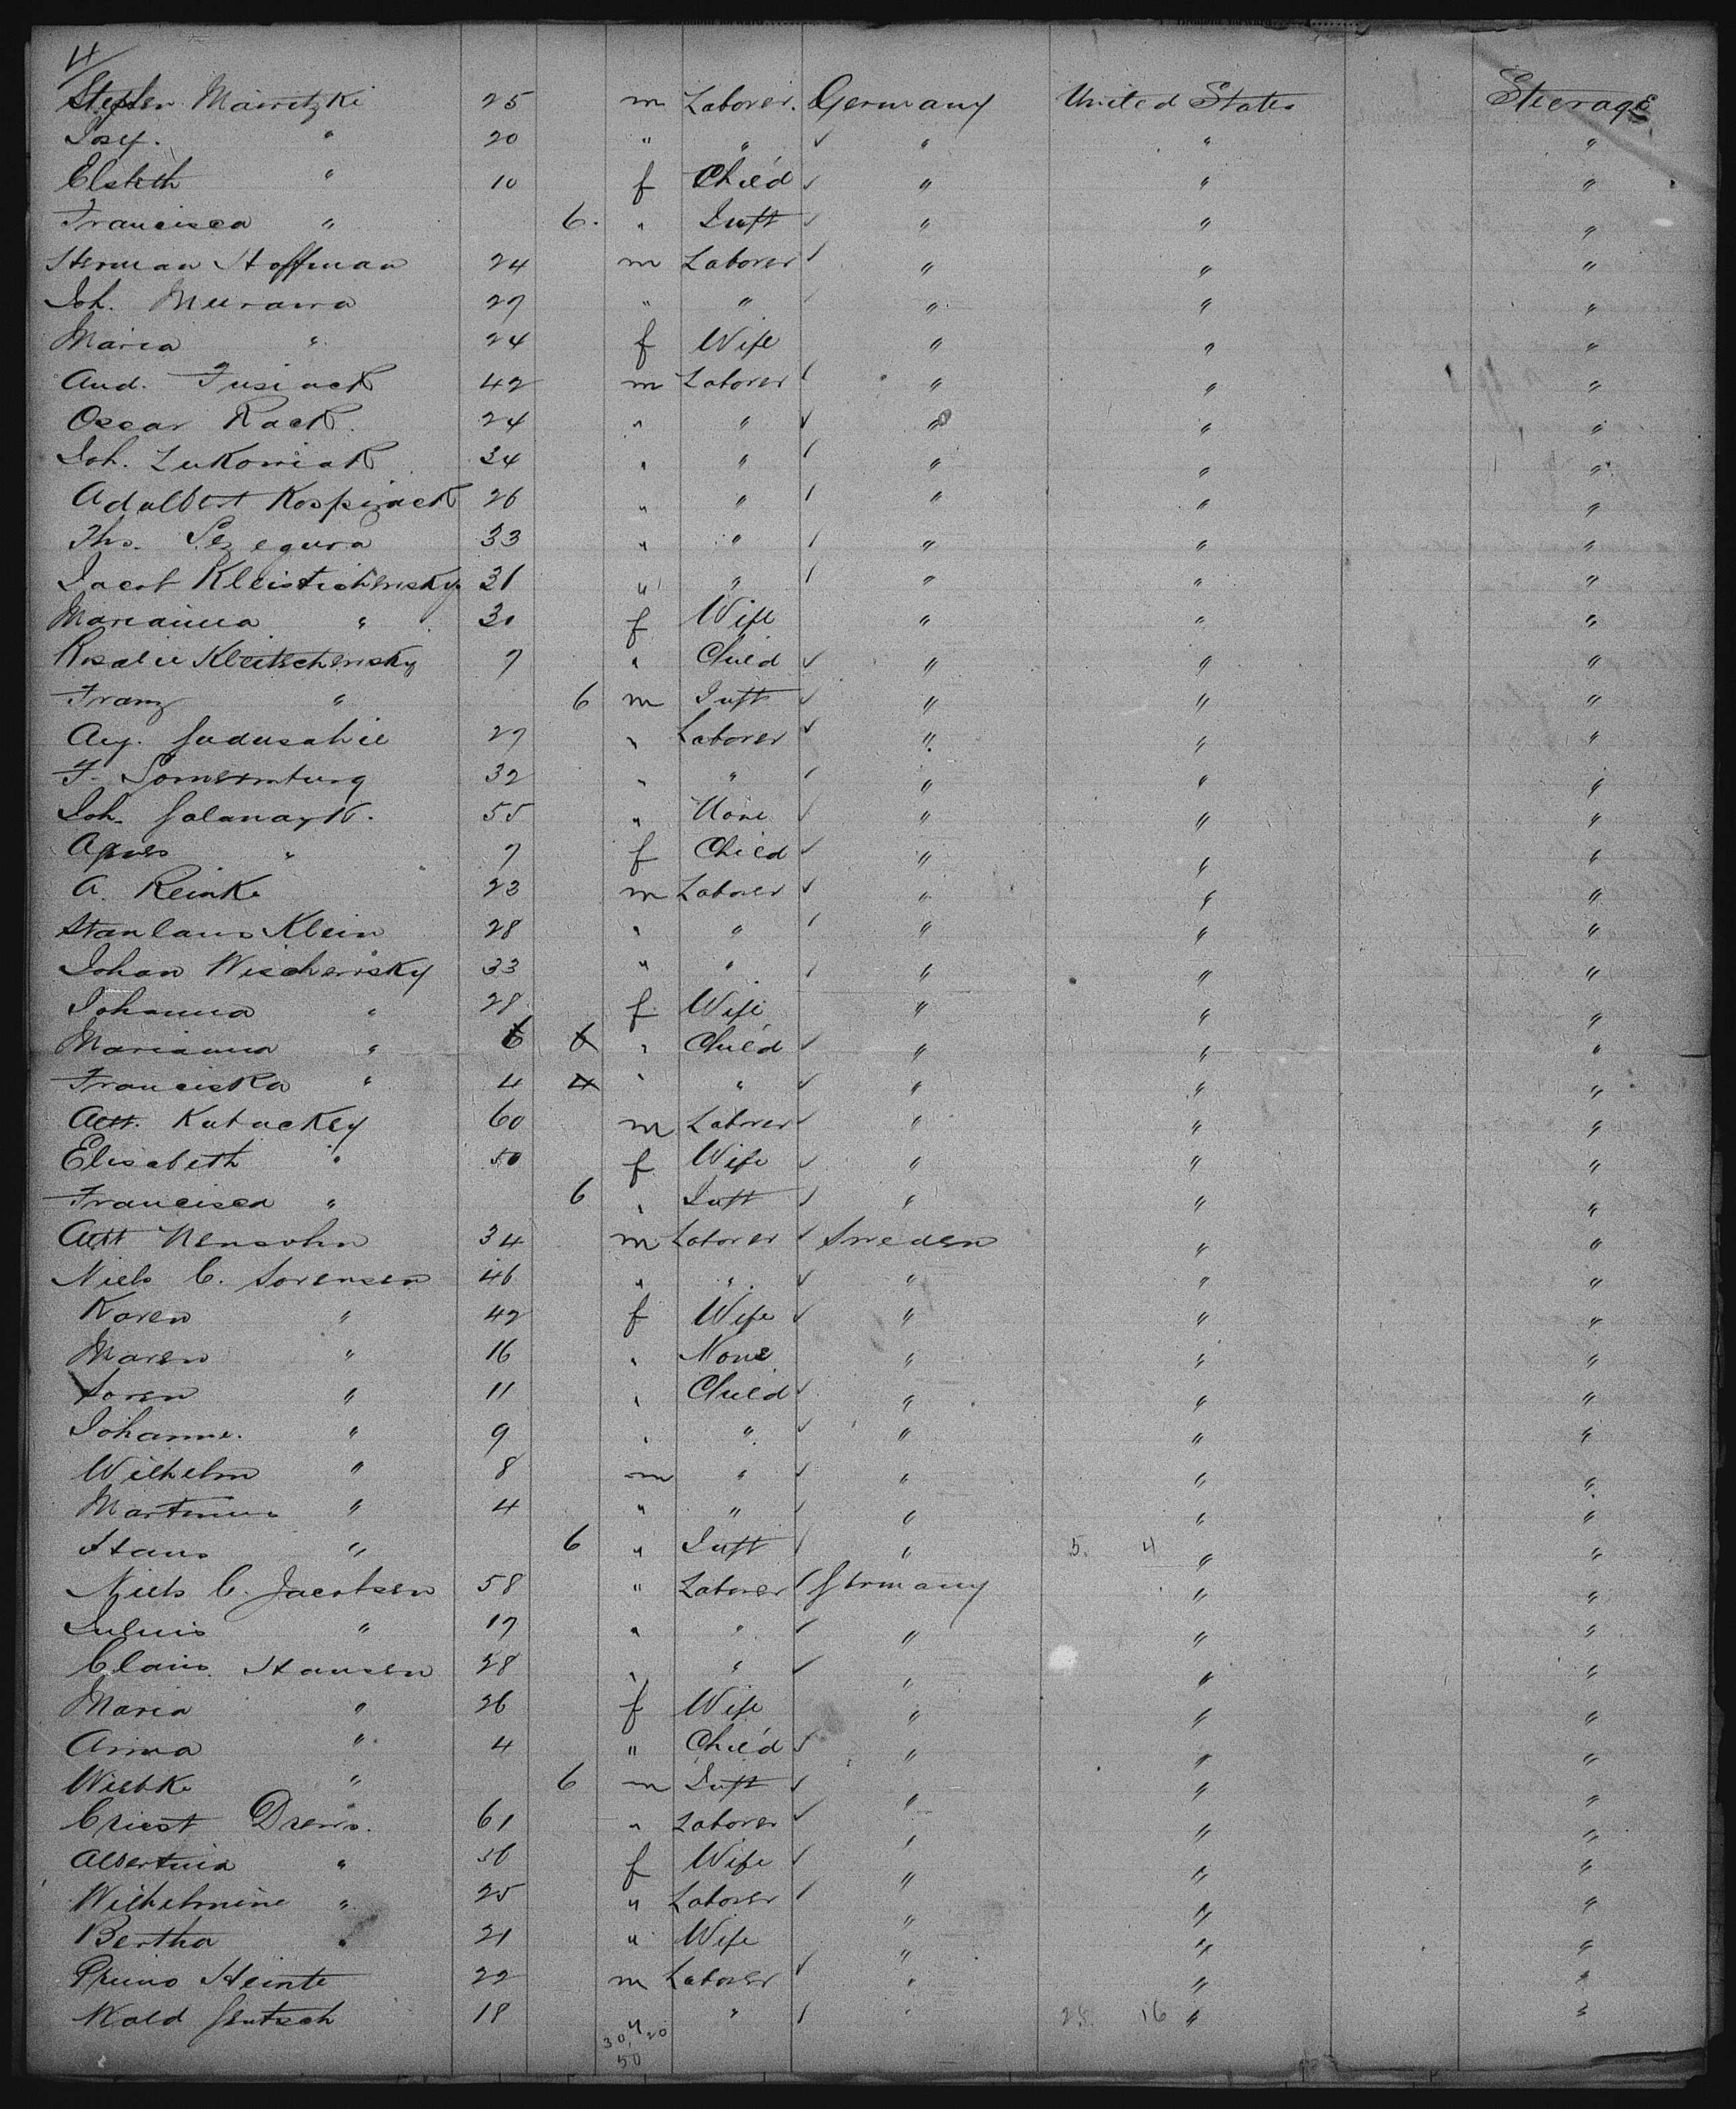 4/
Stephen Mainitzki 25 m Laborer. Germany United States Steerage
Josef. " 20 " " ✓ " " "
Elsbeth " 10 f Child ✓ " " "
Francisca " 6. " Inft ✓ " " "
Herman Hoffman 24 m Laborer ✓ " " "
Joh. Murawa 27 " " " " "
Maria " 24 f Wife " " "
And. Fusiack 42 m Laborer ✓ " " "
Oscar Rack. 24 " " ✓ " " "
Joh. Lukowiak 34 " " ✓ " " "
Adalbert Kospizack 26 " " ✓ " " "
Ths. Szegura 33 " " ✓ " " "
Jacob Kleistichensky 31 " " ✓ " " "
Marianna " 30 f Wife " " "
Rosalie Kleitschensky 7 " Child ✓ " " "
Franz " 6 m Inft ✓ " " "
Aug. 27 " Laborer ✓ " " "
F. 32 " " ✓ " " "
Joh. 55 " None ✓ " " "
Agnes " 7 f Child ✓ " " "
A. Reinke 23 m Laborer ✓ " " "
Stanlaus Klein 28 " " ✓ " " "
Johan Wischensky 33 " " ✓ " " "
Johanna " 28 f Wife " " "
Marianna " 6 6 " Child ✓ " " "
Franciska " 4 4 " " ✓ " " "
Kubackey 60 m Laborer ✓ " " "
Elisabeth " 50 f Wife ✓ " " "
Francisca " 6 " Inft ✓ " " "
Nensohn 34 m Laborer ✓ Sweden " "
Niels C. Sorensen 46 " " ✓ " " "
Karen " 42 f Wife ✓ " " "
Maren " 16 " None " " "
Soren " 11 " Child ✓ " " "
Johanne. " 9 " " ✓ " " "
Wilhelm " 8 m " ✓ " " "
Martinus " 4 " " ✓ " " "
Hans " 6 " Inft ✓ " 5. 4 " "
Niels C. Jacobsen 58 " Laborer ✓ Germany " "
Julius " 17 " " ✓ " " "
Claus Hansen 28 " " ✓ " " "
Maria " 26 f Wife " " "
Anna " 4 " Child ✓ " " "
Wiebke " 6 m Inft ✓ " " "
Christ Drews. 61 " Laborer ✓ " " "
Albertina " 56 f Wife ✓ " " "
Wilhelmine " 25 " Laborer ✓ " " "
Bertha " 21 " Wife " " "
Heinte 22 m Laborer ✓ " " "
Wold Gentsch 18 " " ✓ " 28. 16 " "
30 4 20
50